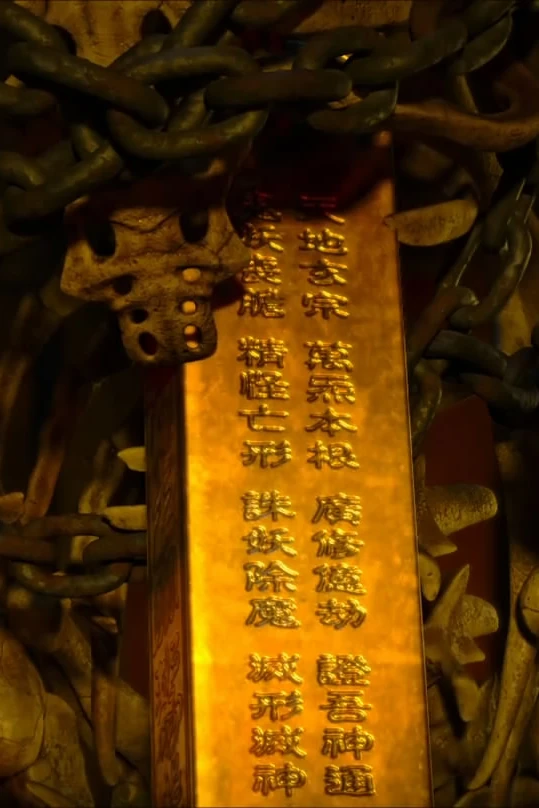 天地玄宗 萬炁本根 廣修億劫 證吾神通
鬼妖喪膽 精怪亡形 誅妖除魔 滅形滅神